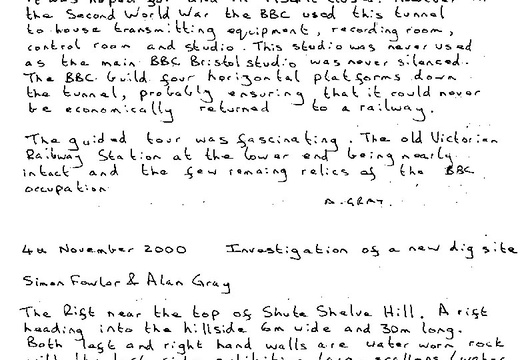 the Second World War the BBC used this tunnel
to house transmitting equipment, recording room,
control room and studio. This studio was never used
as the main BBC Bristol studio was never silenced.
The BBC Guild four horizontal platforms down
the tunnel, probably ensuring that it could never
be economically returned to a railway.
The guided tour was fascinating. The old Victorian
Railway Station at the lower end being nearly
intact and the few remaing relics of the BBC
occupation
A. GRAY.
4th November 2000 Investigation of a new dig site
Simon Fowler & Alan Gray
The Rift near the top of Shute Shelve Hill. A rift
heading into the hillside 6m wide and 30m long.
Both left and right hand walls are water worn rock